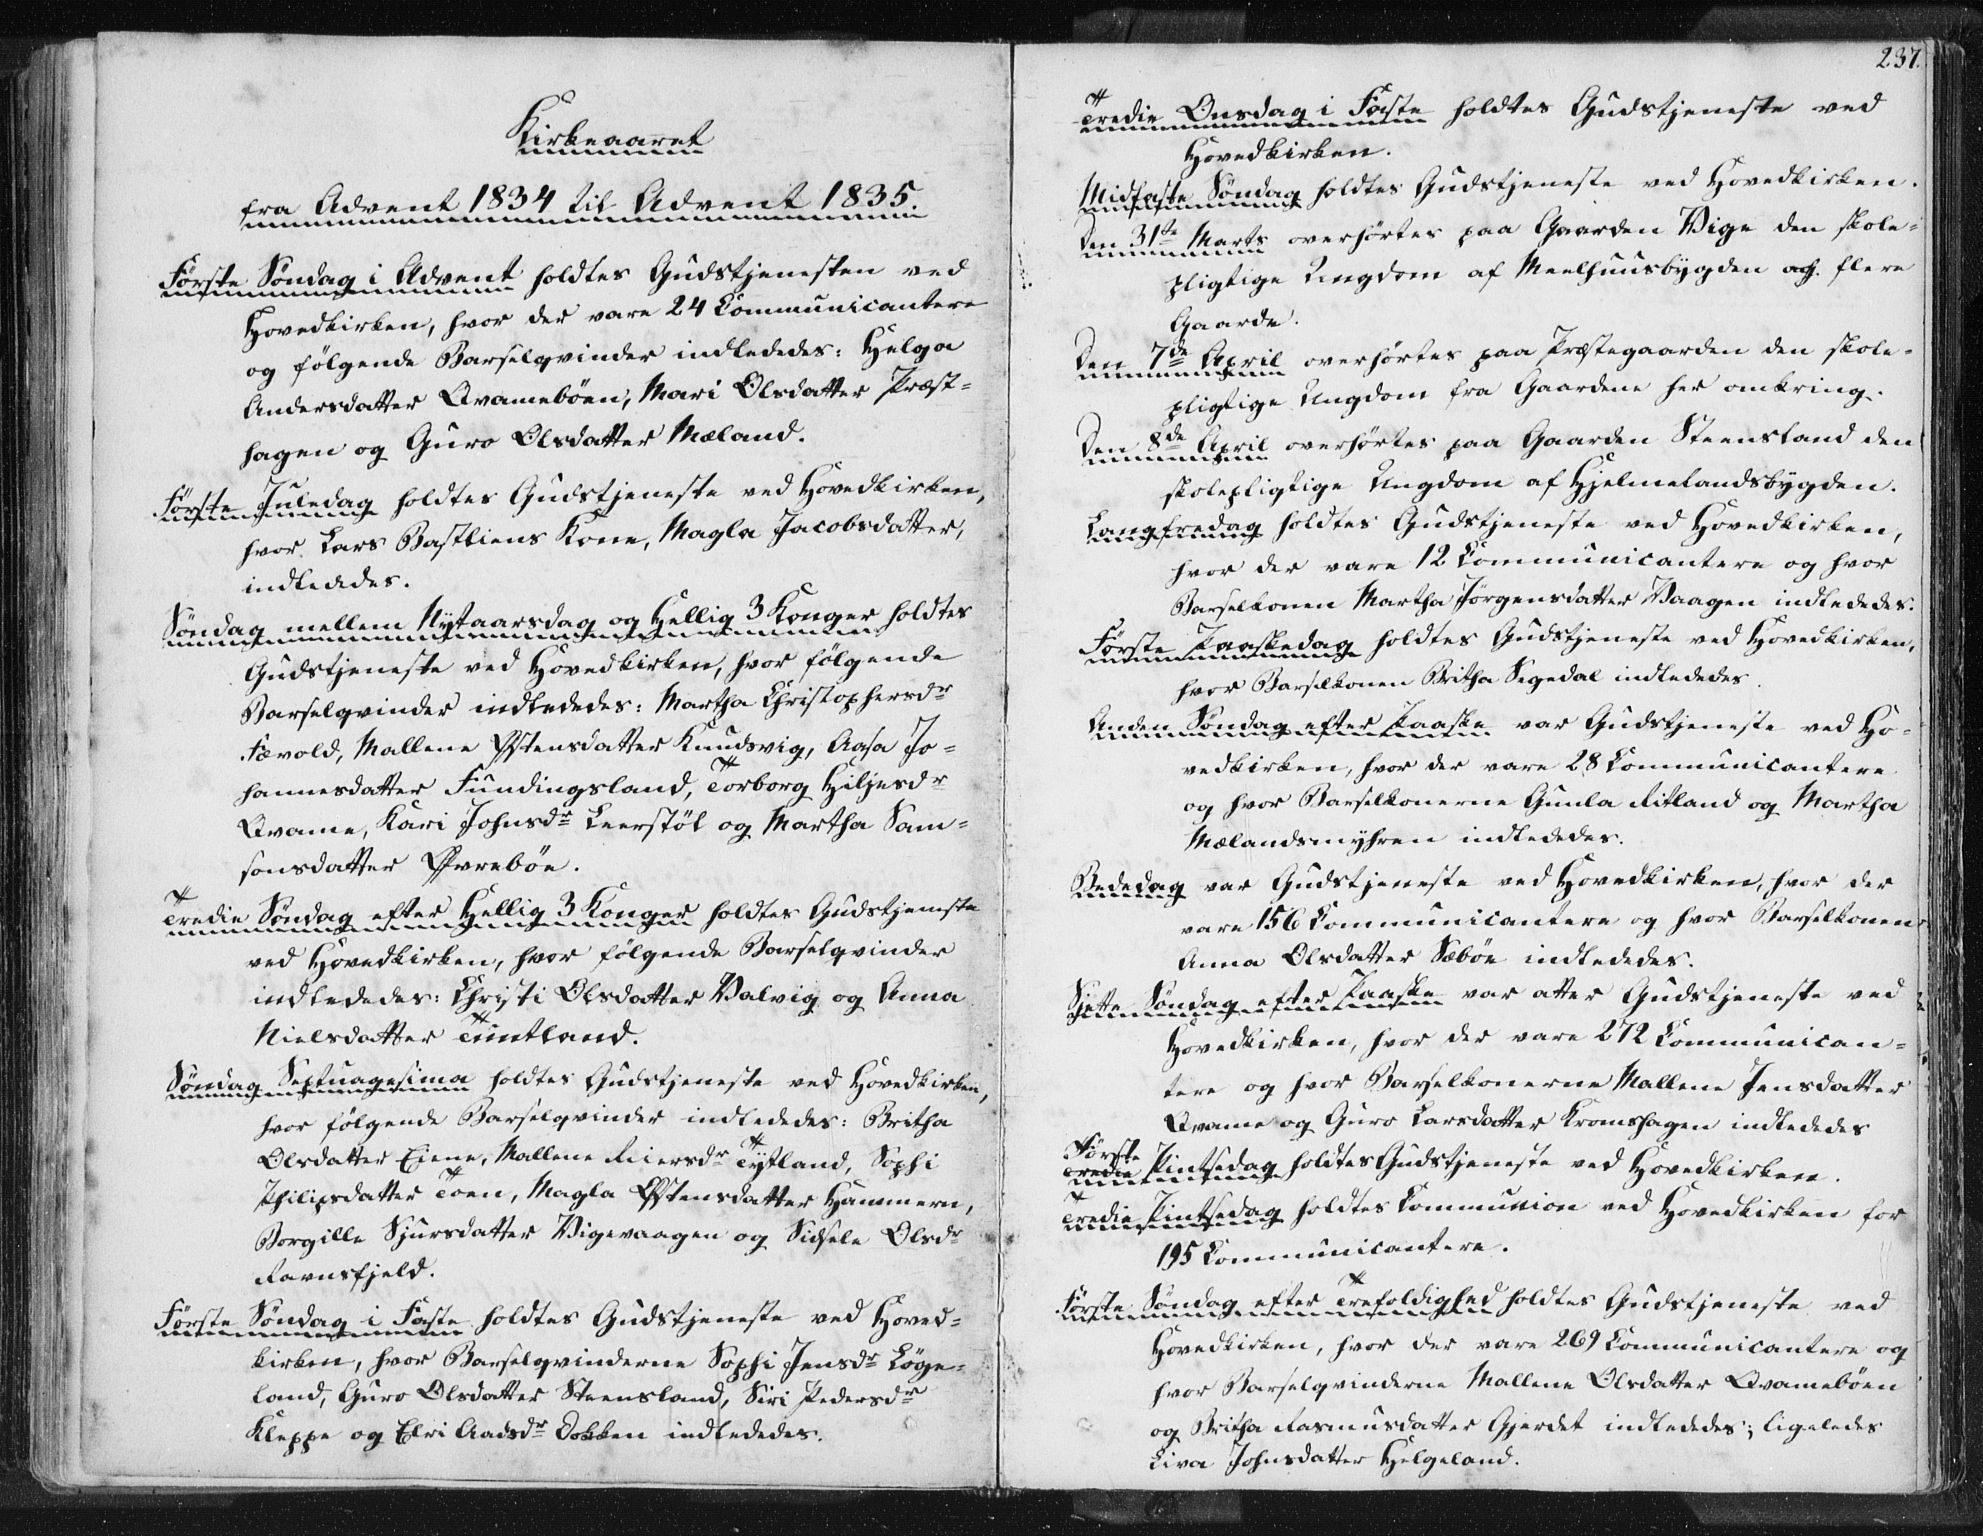 Kirkeaaret
fra Advent 1834 til Advent 1835.
Første Søndag i Advent holdtes Gudstjenesten ved
Hovedkirken, hvor der vare 24 Communicantere
og følgende Barselqvinder indlededes: Helga
Andersdatter Qvamebøen, Mari Olsdatter Præst-
hagen og Guro Olsdatter Mæland.
Første Juledag holdtes Gudstjeneste ved Hovedkirken,
hvor Lars Bastliens Kone, Magla Jacobsdatter,
indlededes.
Søndag mellem Nytaarsdag og Hellig 3 Konger holdtes
Gudstjeneste ved Hovedkirken, hvor følgende
Barselqvinder indlededes: Martha Christophersdr
Fævold, Mallene Østensdatter Knudsvig, Aasa Jo-
hannesdatter Fundingsland, Torborg Hiljesdr
Qvame, Kari Johnsdr Leerstøl og Martha Sam-
sonsdatter Øvrebøe.
Tredie Søndag efter Hellig 3 Konger holdtes Gudstjeneste
ved Hovedkirken, hvor følgende Barselqvinder
indlededes: Christi Olsdatter Valvig og Anna
Nielsdatter Tuntland.
Søndag Septuagesima holdtes Gudstjeneste ved Hovedkirken,
hvor følgende Barselqvinder indlededes: Britha
Olsdatter Eiene, Mallene Reiersdr Tytland, Sophi
Philipsdatter Toen, Magla Østensdatter Hammern,
Borgille Sjursdatter Vigevaagen og Sidsele Olsdr
Ravnsfjeld.
Første Søndag i Faste holdtes Gudstjeneste ved Hoved-
kirken, hvor Barselqvinderne Sophi Jensdr Løge-
land, Guro Olsdatter Steensland, Siri Pedersdr
Kleppe og Elri Aadsdr Dokken indlededes.
237.
Tredie Onsdag i Faste holdtes Gudstjeneste ved
Hovedkirken.
Midfaste Søndag holdtes Gudstjeneste ved Hovedkirken.
Den 31te Marts overhørtes paa Gaarden Vige den skole-
pligtige Ungdom af Meelhuusbygden og flere
Gaarde.
Den 7de April overhørtes paa Præstegaarden den skole-
pligtige Ungdom fra Gaardene her omkring.
Den 8de April overhørtes paa Gaarden Steensland den
skolepligtige Ungdom af Hjelmelandsbygden.
Langfredag holdtes Gudstjeneste ved Hovedkirken,
hvor der vare 12 Communicantere og hvor
Barselkonen Martha Jørgensdatter Vaagen indlededes.
Første Paaskedag holdtes Gudstjeneste ved Hovedkirken,
hvor Barselkonen Britha Segedal indlededes.
Anden Søndag efter Paaske var Gudstjeneste ved Ho-
vedkirken, hvor der vare 28 Communicantere
og hvor Barselkonerne Gunla Ritland og Martha
Mælandsmyhren indlededes.
Bededag var Gudstjeneste ved Hovedkirken, hvor der
vare 156 Communicantere og hvor Barselkonen
Anna Olsdatter Sæbøe indlededes.
Sjette Søndag efter Paaske var atter Gudstjeneste ved
Hovedkirken, hvor der vare 272 Communican-
tere og hvor Barselkonerne Mallene Jensdatter
Qvame og Guro Larsdatter Kromshagen indlededes
Første
Tredie Pintsedag holdtes Gudstjeneste ved Hovedkirken.
Tredie Pintsedag holdtes Communion ved Hovedkirken for
195 Communicantere.
Første Søndag efter Trefoldighed holdtes Gudstjeneste ved
Hovedkirken, hvor der vare 269 Communicantere og
hvor Barselqvinderne Mallene Olsdatter Qvamebøen
og Britha Rasmusdatter Gjerdet indlededes; ligeledes
Liva Johnsdatter Helgeland.